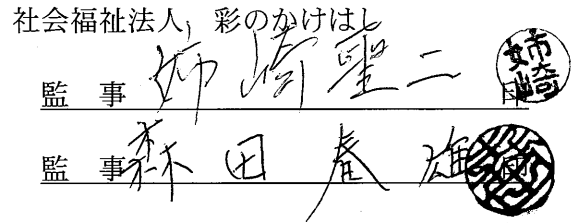 社会福祉法人 彩のかけはし
監 事 姉崎聖二 印 姉崎
監 事 森田春雄 印